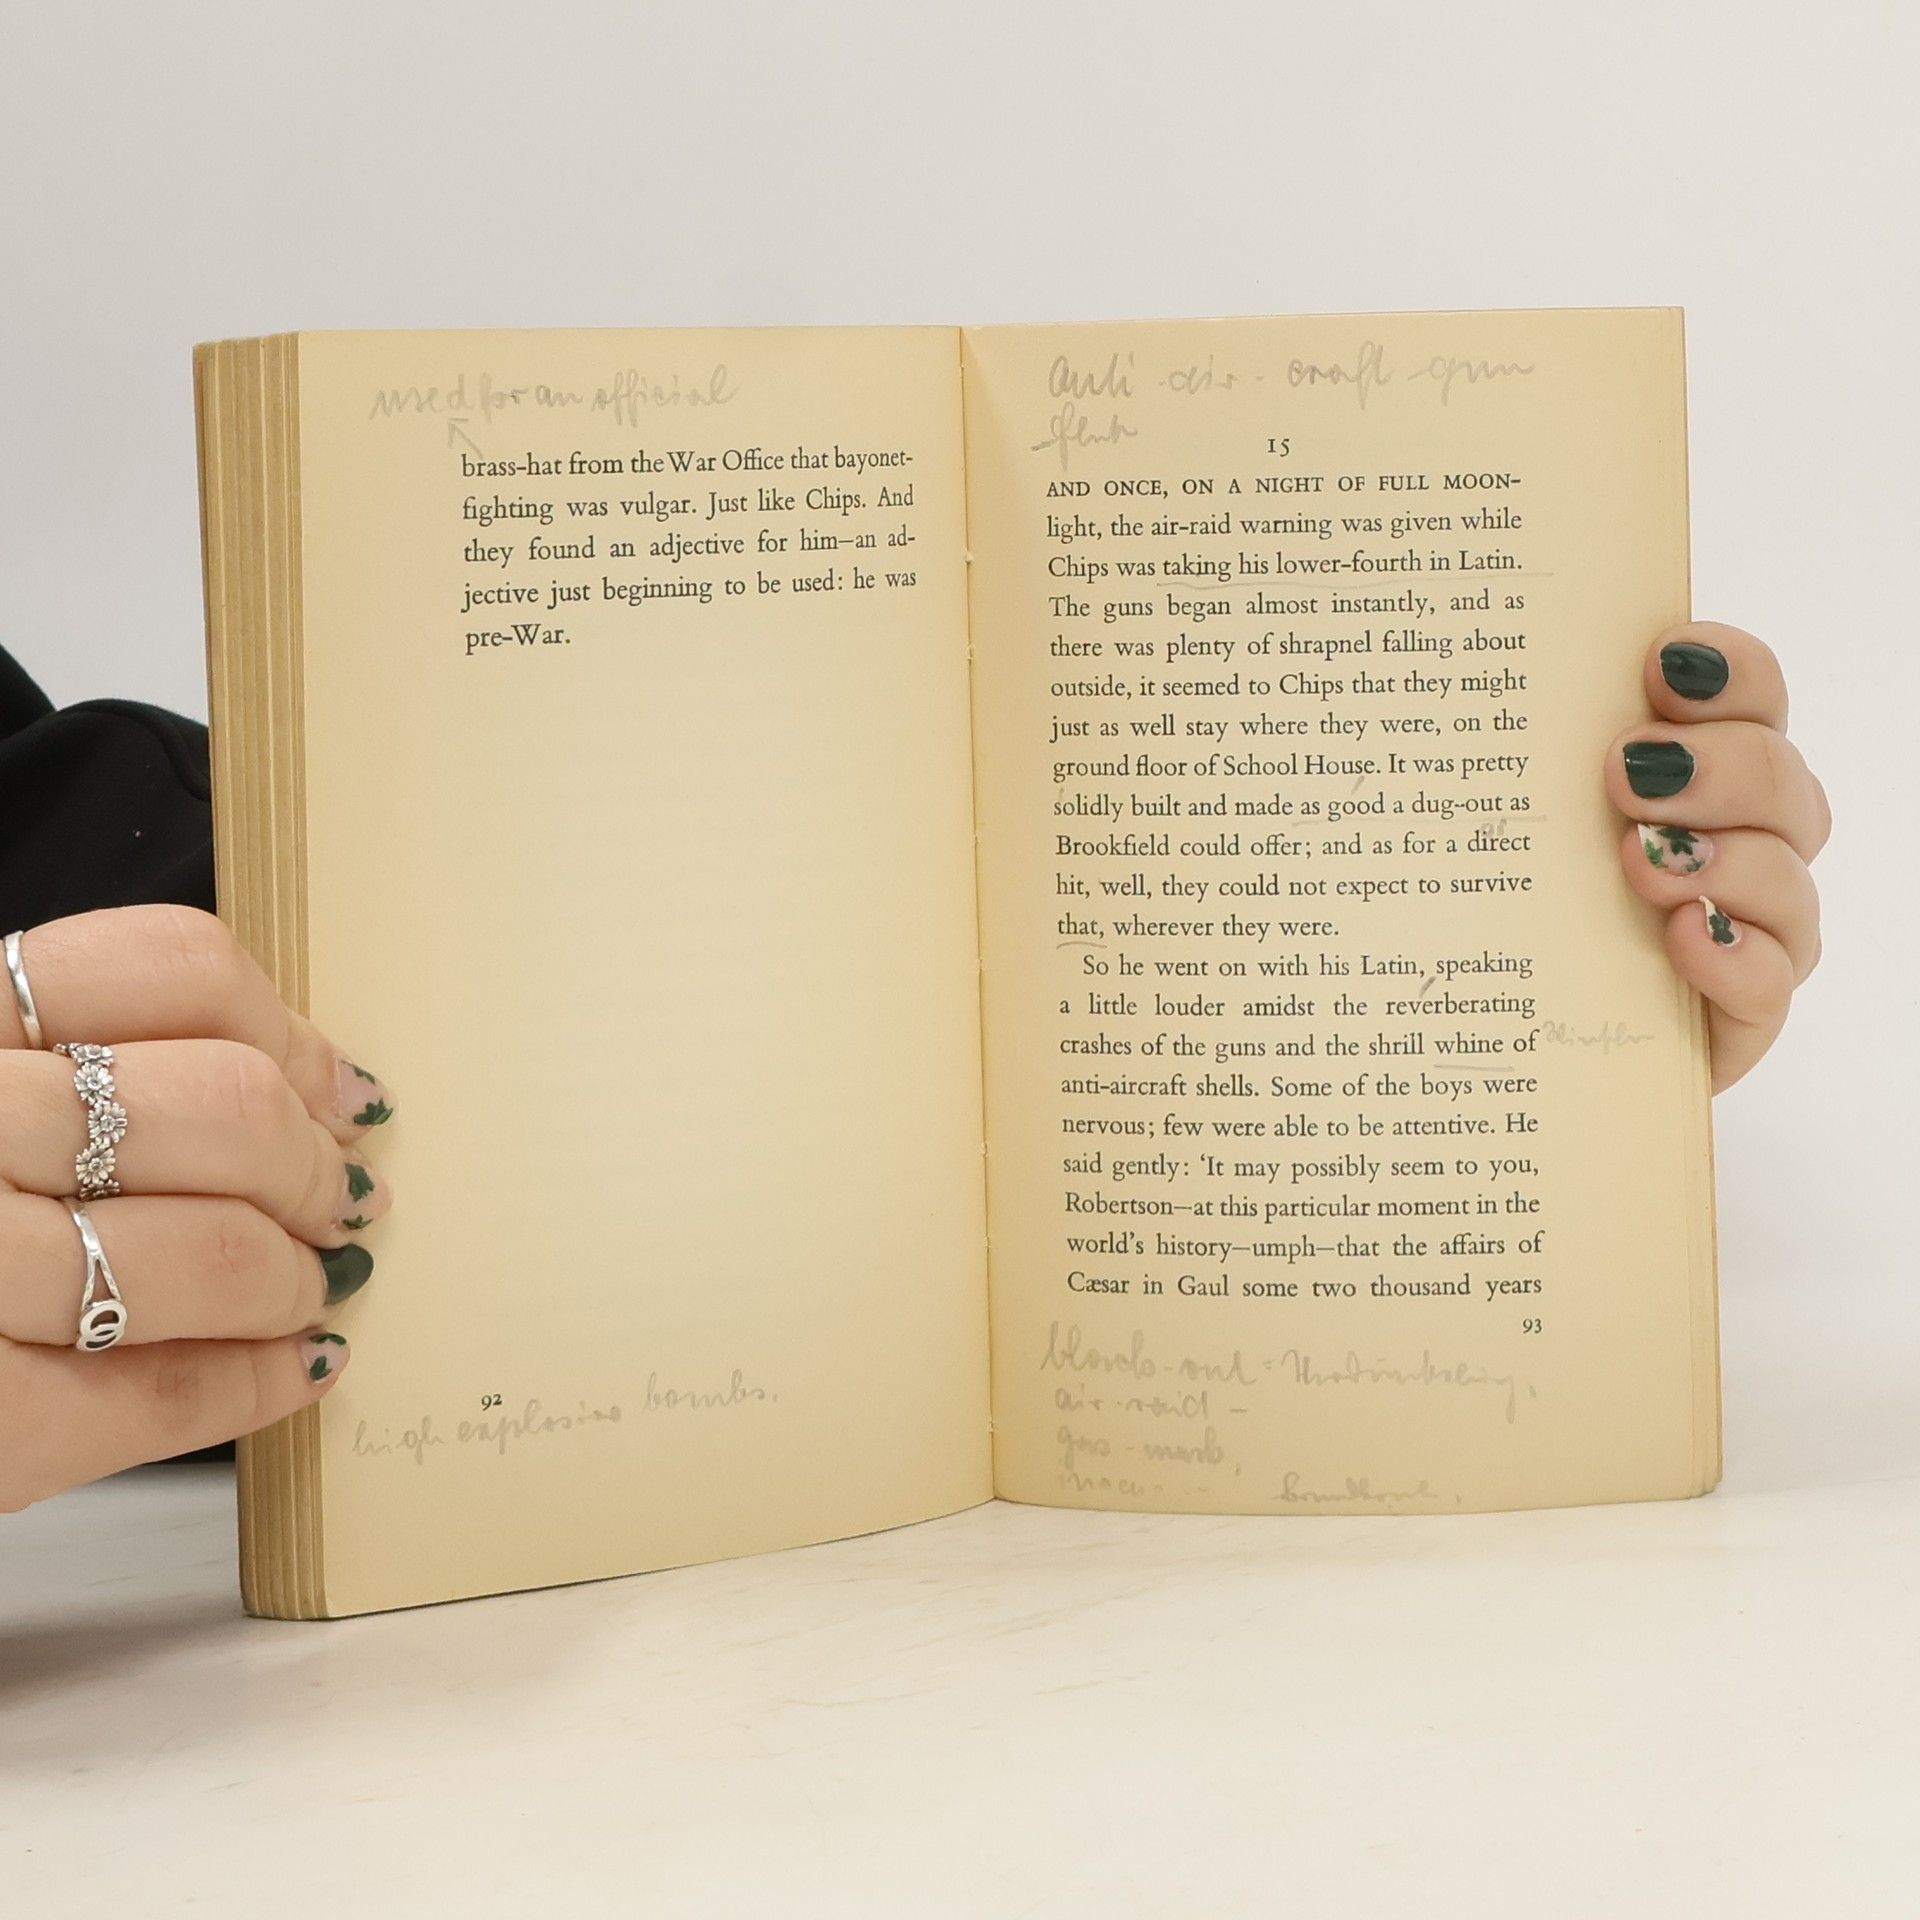 used for an official
brass-hat from the War Office that bayonet-
fighting was vulgar. Just like Chips. And
they found an adjective for him—an ad-
jective just beginning to be used: he was
pre-War.
92
high explosive bombs.
Anti-air-craft gun
15
AND ONCE, ON A NIGHT OF FULL MOON-
light, the air-raid warning was given while
Chips was taking his lower-fourth in Latin.
The guns began almost instantly, and as
there was plenty of shrapnel falling about
outside, it seemed to Chips that they might
just as well stay where they were, on the
ground floor of School House. It was pretty
solidly built and made as good a dug-out as
Brookfield could offer; and as for a direct
hit, well, they could not expect to survive
that, wherever they were.
So he went on with his Latin, speaking
a little louder amidst the reverberating
crashes of the guns and the shrill whine of
anti-aircraft shells. Some of the boys were
nervous; few were able to be attentive. He
said gently: ‘It may possibly seem to you,
Robertson—at this particular moment in the
world’s history—umph—that the affairs of
Cæsar in Gaul some two thousand years
93
black-out = Verdunkelung,
air-raid -
gas-mask,